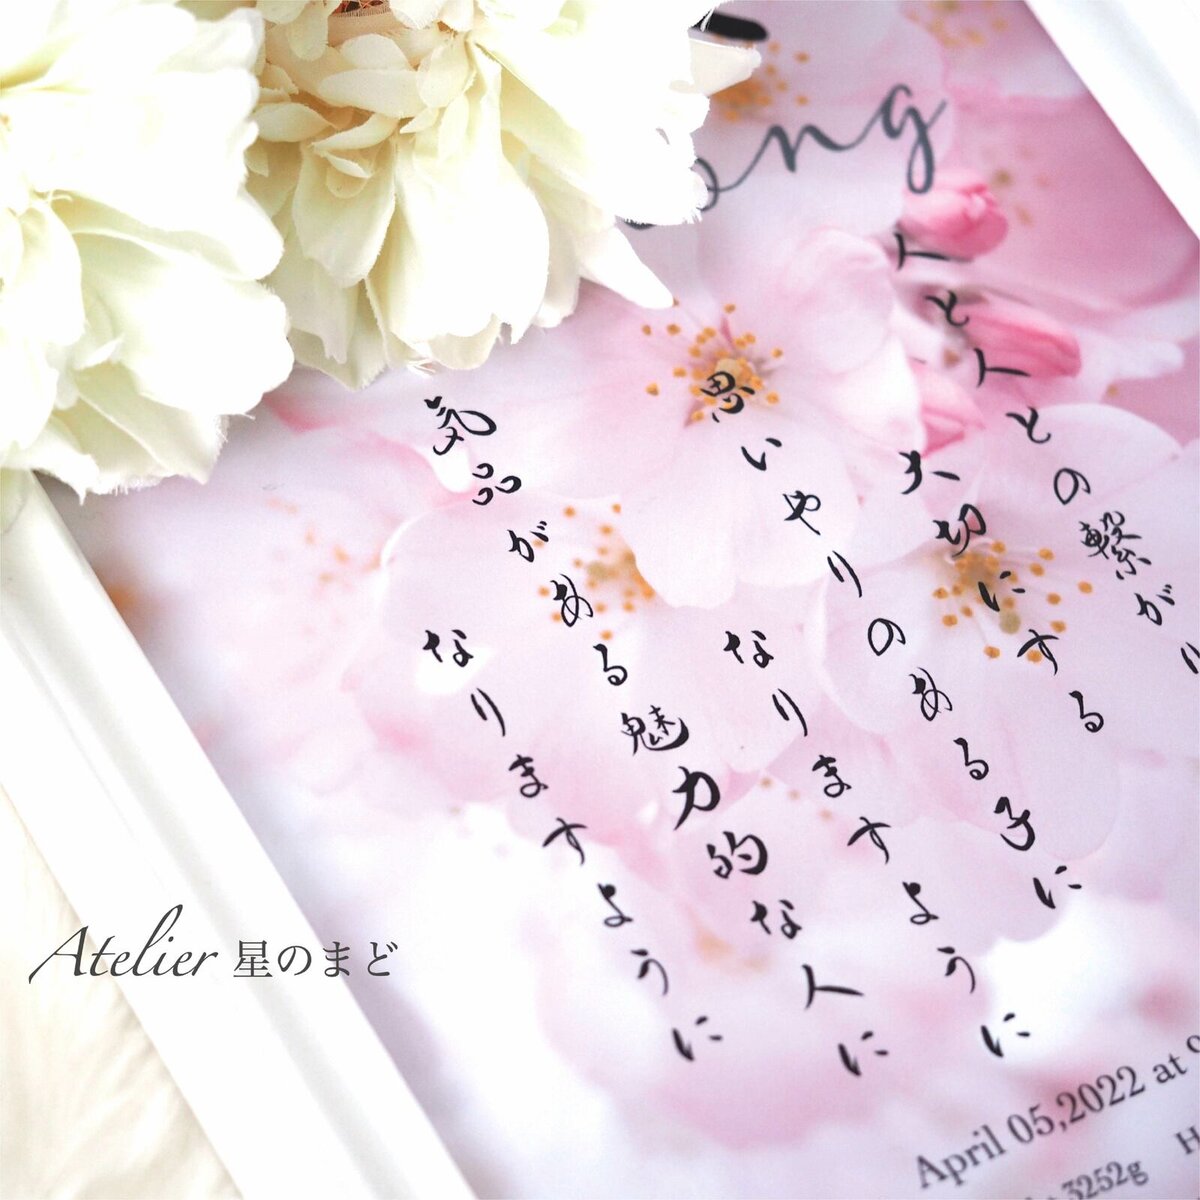 ong
人と人との繋がり
大切にする
思いやりのある子に
なりますように
気品がある魅力的な人に
なりますように
April 05,2022 at 9
3252g H
Atelier 星のまど